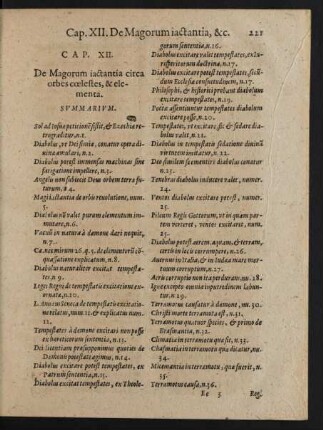 Cap. XII. De Magorum iactantia, &c. 221
CAP. XII.
De Magorum iactantia circa
orbes cœlestes, & ele-
menta.
SVMMARIVM.
Sol ad Iosue petitionē stetit, & Ezechia re-
trogradatur, n.1.
Diabolus, vt Dei simia, conatur opera di-
uina æmulari, n.2.
Diabolus potest immensas machinas sine
fatigatione impellere, n.3.
Angelo non subiicit Deus orbem terra fu-
turum, n.4.
Magis discantia de orbis reuolutione, num.
5.
Diabolus nō valet parum elementum im-
mutare, n.6.
Vacuũ in natura à dæmone dari nequit,
n.7.
Ca. nec mirum 26. q. 5. de diminutorũ cō-
quassatione explicatum, n.8.
Diabolus naturaliter excitat tempesta-
tes, n.9.
Leges Regni de tempestatis excitatione enu-
cleatæ, n.10.
tempestatis excitatio-
ne interdictum, num. 11. & n. 12.
Tempestates à dæmone excitari non posse
ex hæreticorum sententia, n.13.
Dei licentiam præsupponimus quoties de
Dæmonis potestate agimus, n.14.
Diabolus potest excitare tempestates, ex
Patrum sententia, n.15.
Diabolus excitat tempestates, ex Theolo-
gorum sententia, n.16.
Diabolus excitare valet tempestates, ex Iu-
risperitorum doctrina, n.17.
Diabolus excitare potest tempestates, secũ-
dum Ecclesiæ consuetudinem, n.17.
Philosophi, & historici probant diabolum
excitare tempestates, n.19.
Poetæ asseuerant tempestates diabolum
excitare posse, n.20.
Tempestates, vt excitare, sic & sedare diabo-
lus valet, n.21.
Diabolus in tempestatis sedatione diuinā
virtutem imitatur, n.22.
Deo similem se ementiri diabolus conatur
n.23.
Tenebras diabolus inducere valet, numer.
24.
Ventos diabolus excitare potest, numer.
25.
Pileum Regis Gothorum, vt in quam par-
tem verteret, ventus excitabatur, num.
27.
Diabolus potest aerem, aquam, & terram,
atrāheloco corrumpere, n.26.
Auernus in Italia, & in India mare mor-
tuum corruptum, n.27.
Aeris corruptio non ita perdurans, nu. 28.
Ignis corpore omnia in putredinem labun-
tur, n.29.
Terræmotus causatur à dæmone, nu. 30.
Christi morte terræmotus est, n.31.
Terræmotus quatuor species, & primo de
Brasmantia, n.32.
Climatia in terræmotu quæ, n.33.
Chasmatia in terræmotu qua dicatur, nu.
34.
Micematia in terræmotu, quæ fuerit, n.
35.
Terræmotus causa, n.36.
Ee 5 Regi.